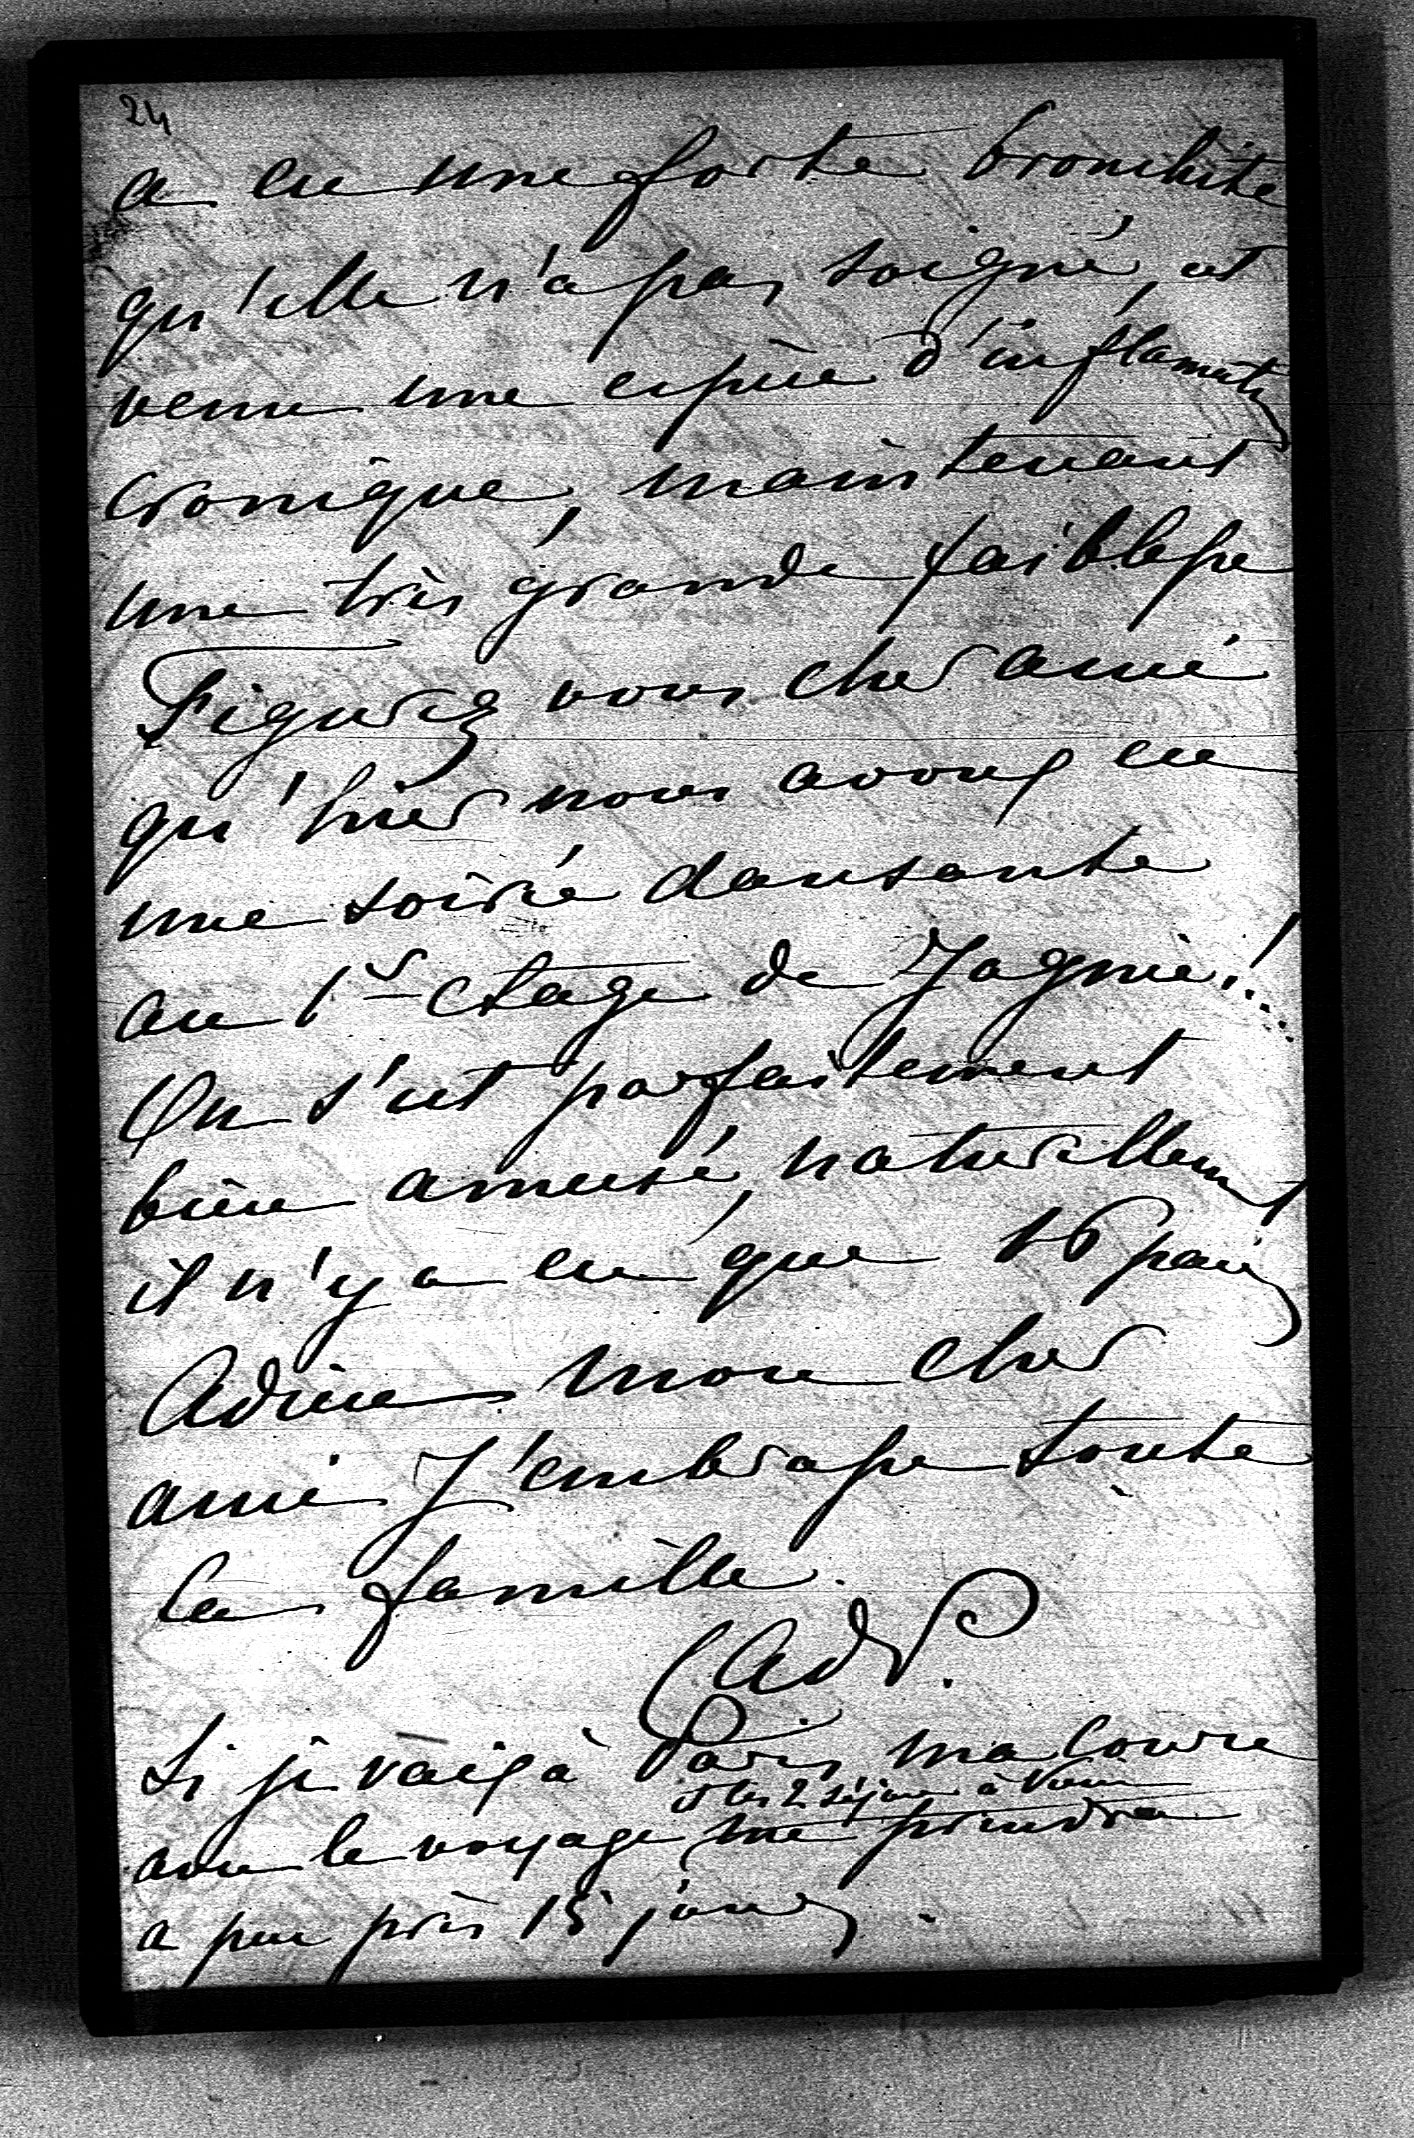 24
a eu une forte bronchite
qu'elle n'a pas soigné, est
venu une espèce d'inflamation
cronique, maintenant
une très grande faiblesse
Figurez vous cher ami
qu'hier nous avons eu
une soirée dansante
au 1r étage de Jagnie!...
On s'est parfaitement
bien amusé, naturellement
il n'y a eu que 16 pairs
Adieu mon cher
ami J'embrasse toute
la famille.
CAdP.
Si je vais à Paris, ma course
et les 2 séjour à
avec le voyage me prendra
a peu près 15 jours.